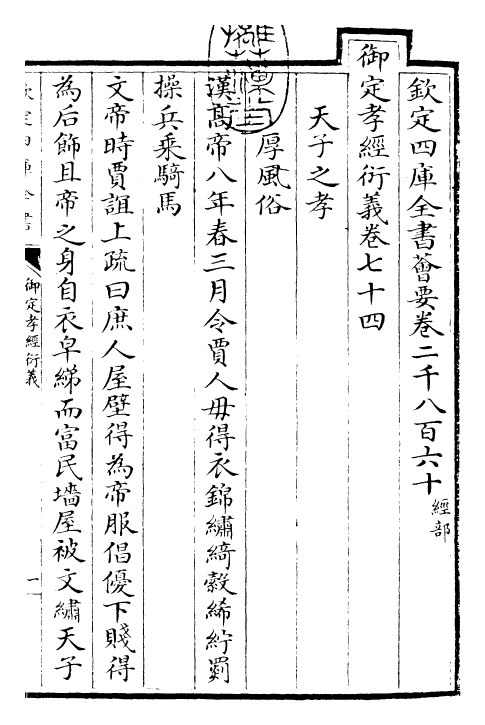 欽定四庫全書薈要卷二千八百六十經部
御定孝經衍義卷七十四
天子之孝
厚風俗
漢髙帝八年春三月令賈人毋得衣錦繡綺縠絺紵罽
操兵乘騎馬
文帝時賈誼上疏曰庶人屋壁得為帝服倡優下賤得
為后飾且帝之身自衣皁綈而富民墻屋被文繡天子
欽定四庫全書
御定孝經衍義
一